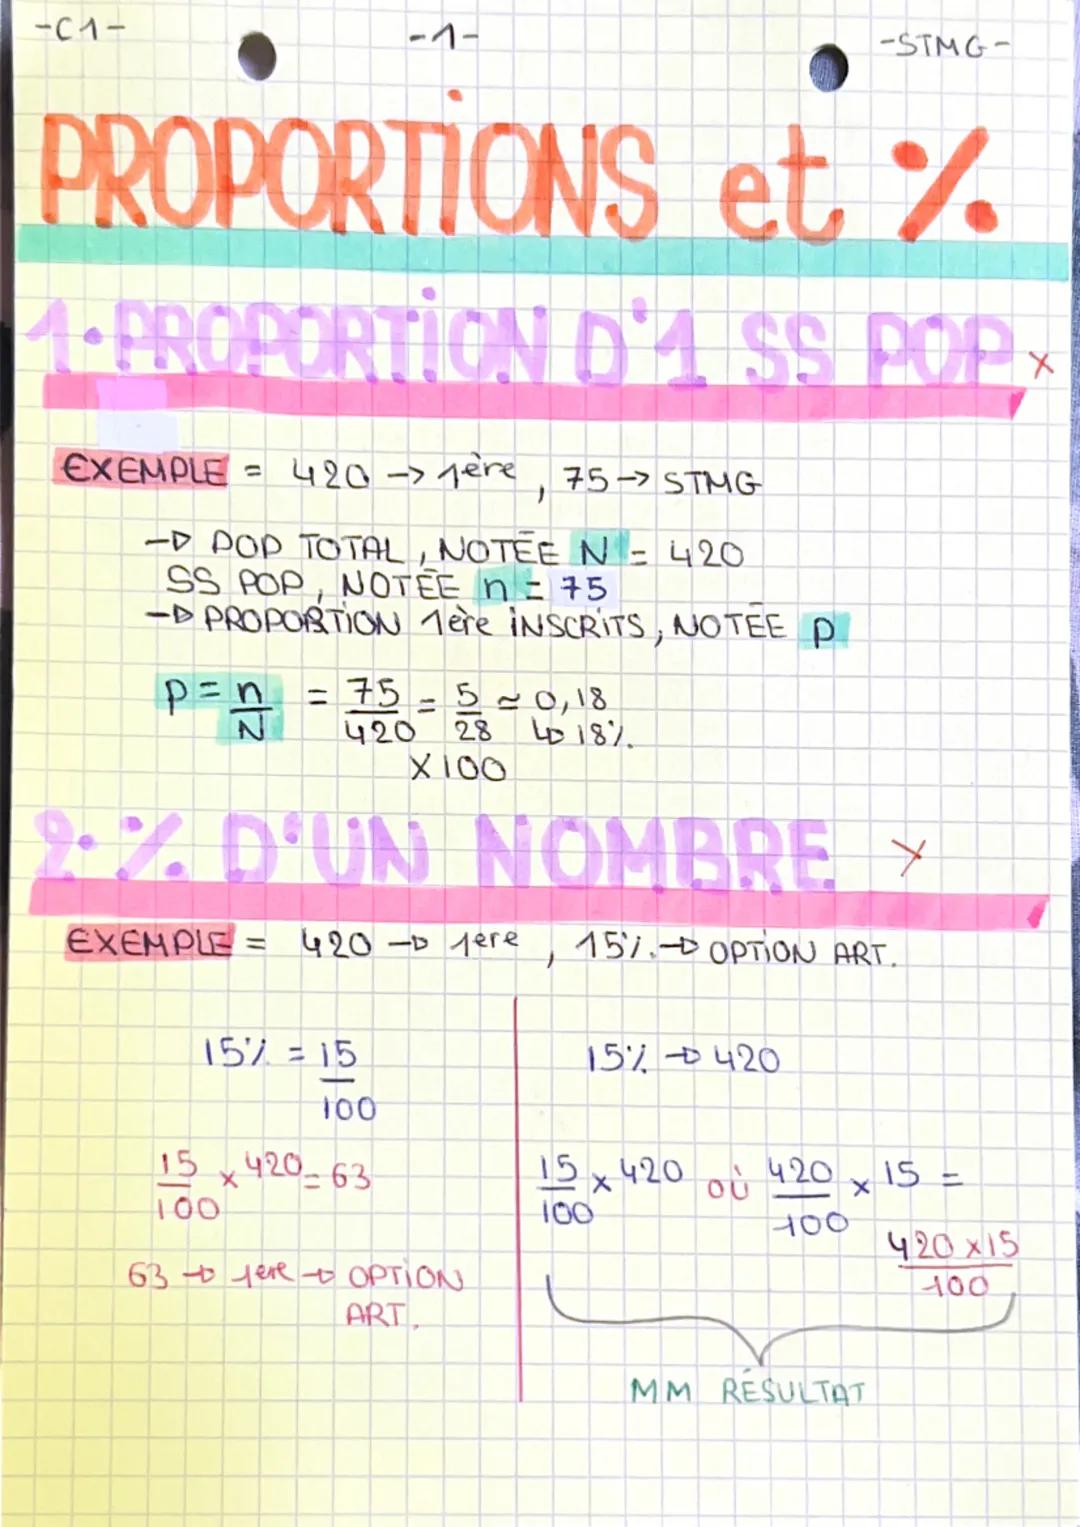 -C1-
-1-
-STMG-
PROPORTIONS et %
1. PROPORTION D'1 SS POP x
EXEMPLE = 420 → 1ère, 75 → STMG
→ POP TOTAL, NOTÉE N = 420
SS POP, NOTÉE n = 75
→ PROPORTION 1ère INSCRITS, NOTÉE p
p = n/N = 75/420 = 5/28 ≈ 0,18
↳ 18%.
X 100
2. % D'UN NOMBRE x
EXEMPLE = 420 → 1ere, 15% → OPTION ART.
15% = 15/100
15/100 x 420 = 63
63 → 1ere → OPTION
ART.
15% → 420
15/100 x 420 où 420/100 x 15 =
420 x 15/100
MM RÉSULTAT